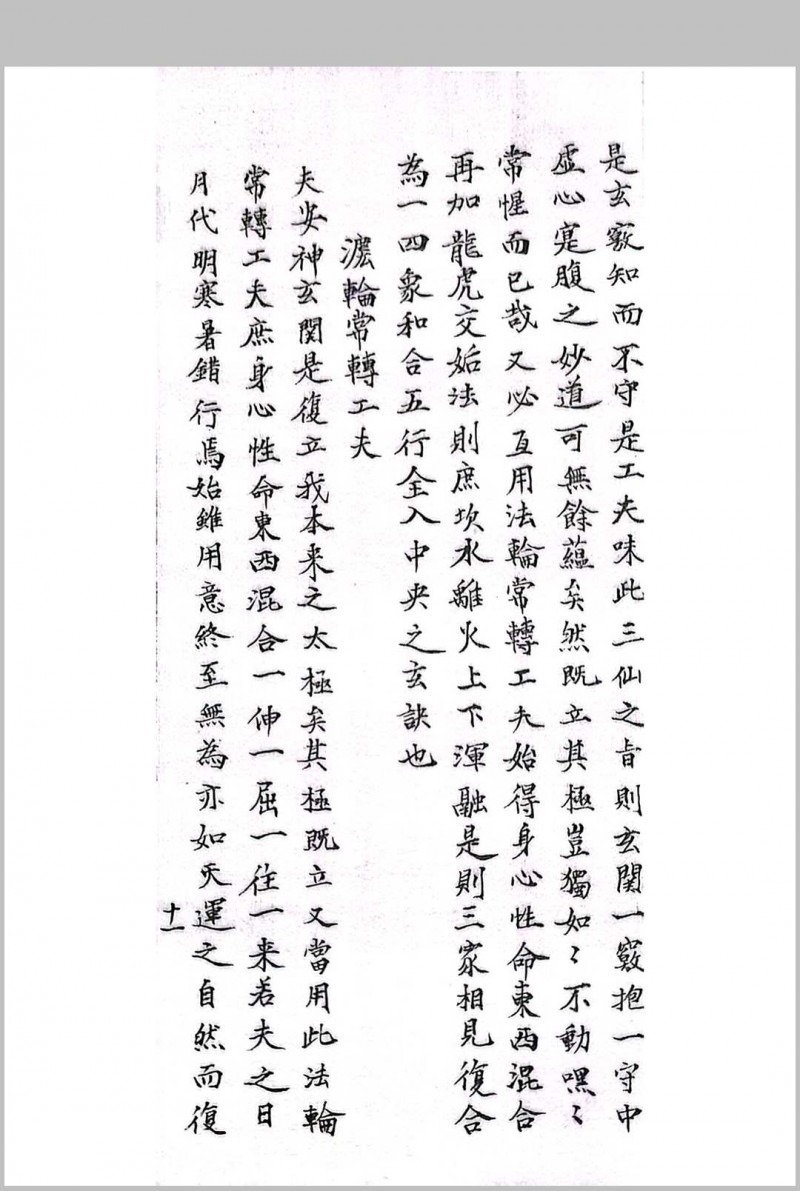 是玄竅知而不守是工夫味此三仙之旨則玄関一竅抱一守中
虛心寔腹之妙道可無餘蘊矣然既立其極豈獨如〻不動嘿〻
常惺而已哉又必互用法輪常轉工夫始得身心性命東西混合
再加龍虎交姤法則庶坎水離火上下渾融是則三家相見復合
為一四象和合五行全入中央之玄訣也
灋輪常轉工夫
夫安神玄関是復立我本来之太極矣其極既立又當用此法輪
常轉工夫庶身心性命東西混合一伸一屈一往一来若夫之日
月代明寒暑錯行焉始雖用意終至無為亦如天運之自然而復
十一